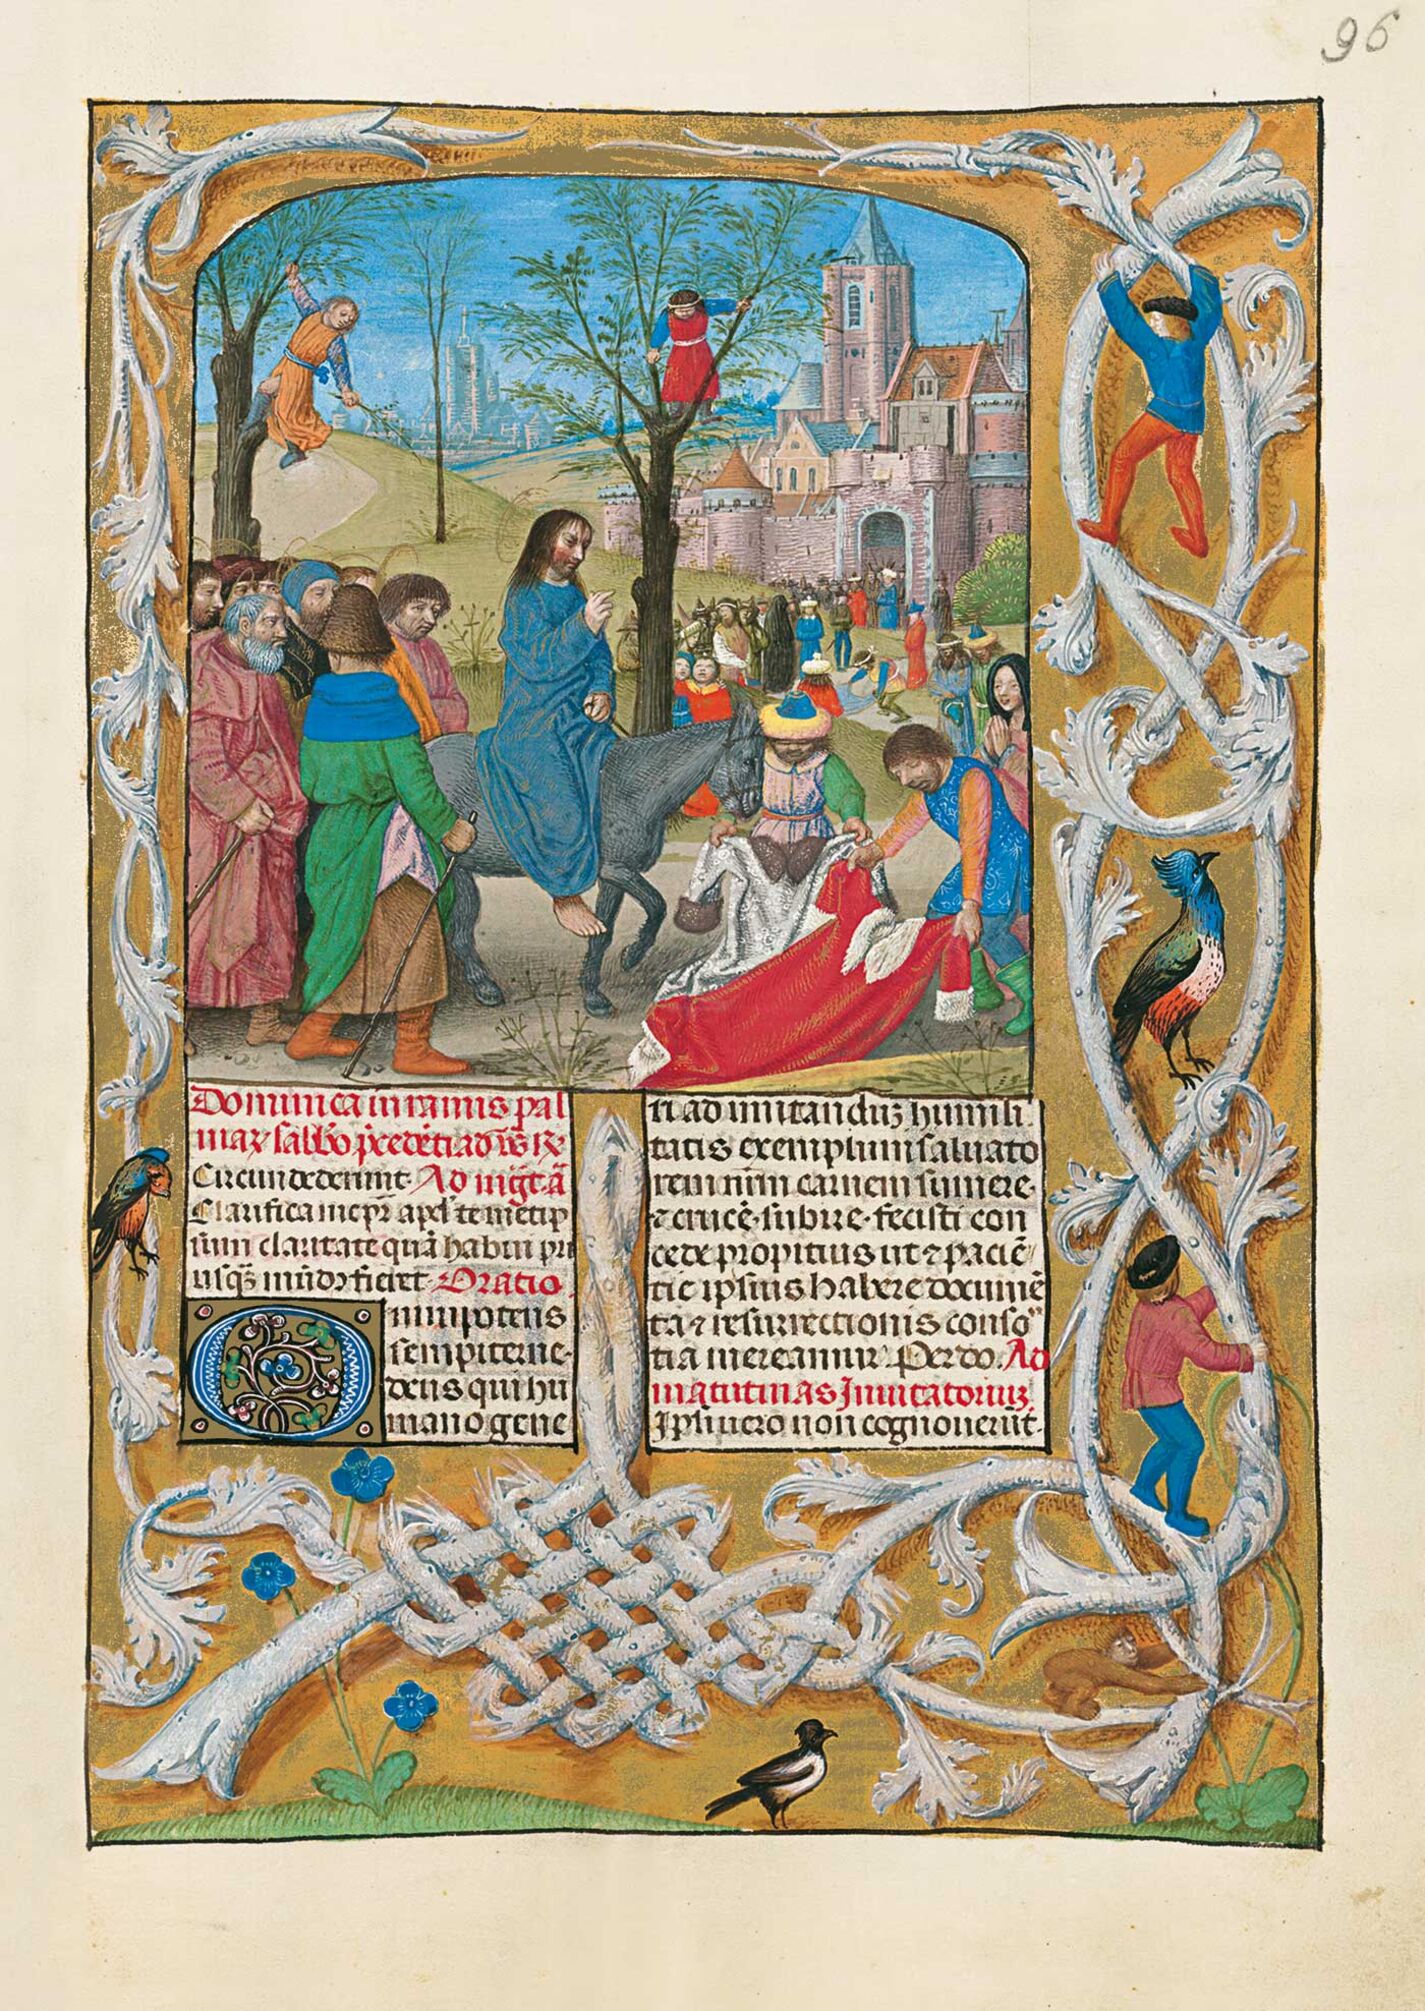 96
Dominica in ramis pal
maꝝ sabb̄o p̄cedēti ad vs̄ R̄
Circumdederunt. Ad mḡt. ā
Clarifica me pr̄ apd̓ temetip
sum claritate quā habui pri
usq̄ȝ mūdꝰ fieret. Oratio
Omnipotens
sempiterne
deus qui hu
mano gene
ri ad imitanduꝫ humili
tatis exemplum saluato
rem nr̄m carnem sumere.
⁊ crucē subire. fecisti con
cede propitius ut ⁊ paciē
tie ipsius habere documē
ta ⁊ resurrectionis conso
tia mereamur. Per do. Ad
matutinas Inuitatoriuꝫ
Ipsi uero non cognouerūt.